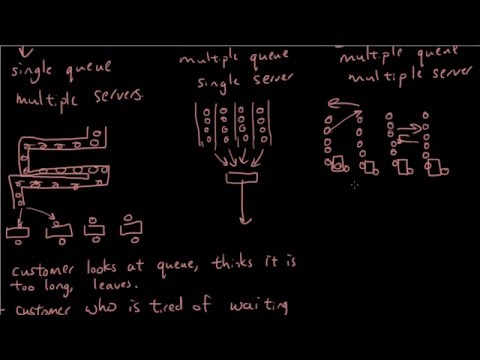 single queue
multiple servers.
multiple queue
single server
multiple queue
multiple server
customer looks at queue, thinks it is
too long, leaves.
customer who is tired of waiting